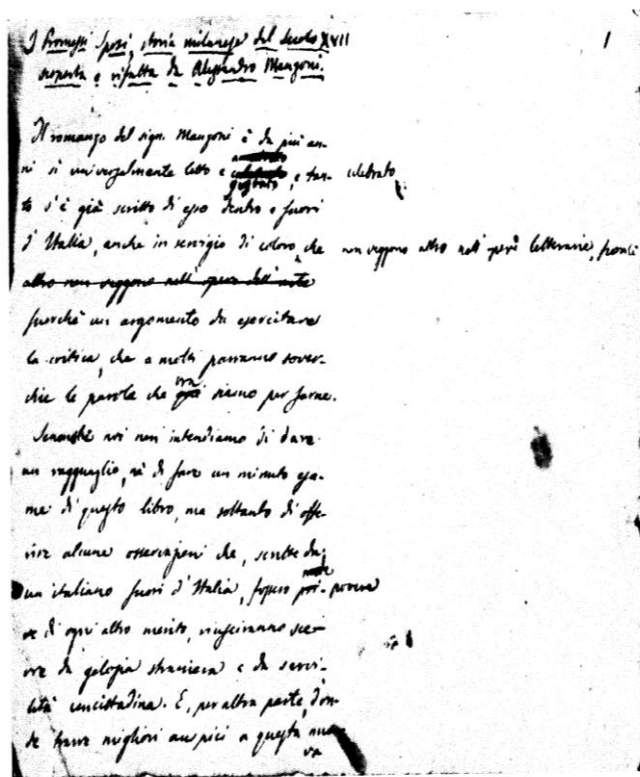 I Promessi Sposi, storia milanese del Secolo XVII 1
scoperta e rifatta da Alessandro Manzoni.
Il romanzo del sign. Manzoni è da più an-
ni sì universalmente letto e gustato, e tan- celebrato
to s'è già scritto di esso dentro e fuori
d'Italia, anche in servigio di coloro che non veggono altro nell'opere letterarie, fuorchè
altro non veggono nell'opera dell'arte
fuorchè un argomento da esercitare
la critica, che a molti parranno sover-
chie le parole che ora siamo per farne.
Senonchè noi non intendiamo di dare
un ragguaglio, nè di fare un minuto esa-
me di questo libro, ma soltanto di offe-
rire alcune osservazioni che, scritte da
un italiano fuori d'Italia, fossero pure povere
di ogni altro merito, riusciranno sce-
vre da gelosia straniera e da servi-
lità concittadina. E, per altra parte, don-
de trarre migliori auspici a questa nuo-
va